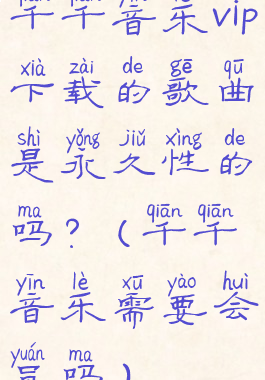 千千音乐vip
xià zài de gē qū
下载的歌曲
shì yǒng jiǔ xìng de
是永久性的
ma qiān qiān
吗？（千千
yīn lè xū yào huì
音乐需要会
yuán ma
员吗）